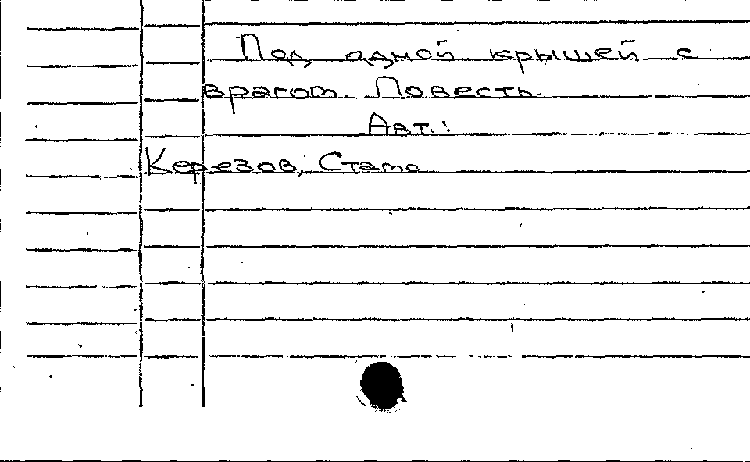 Под одной крышей с
врагом. Повесть.
Авт.:
Керезов, Стамо